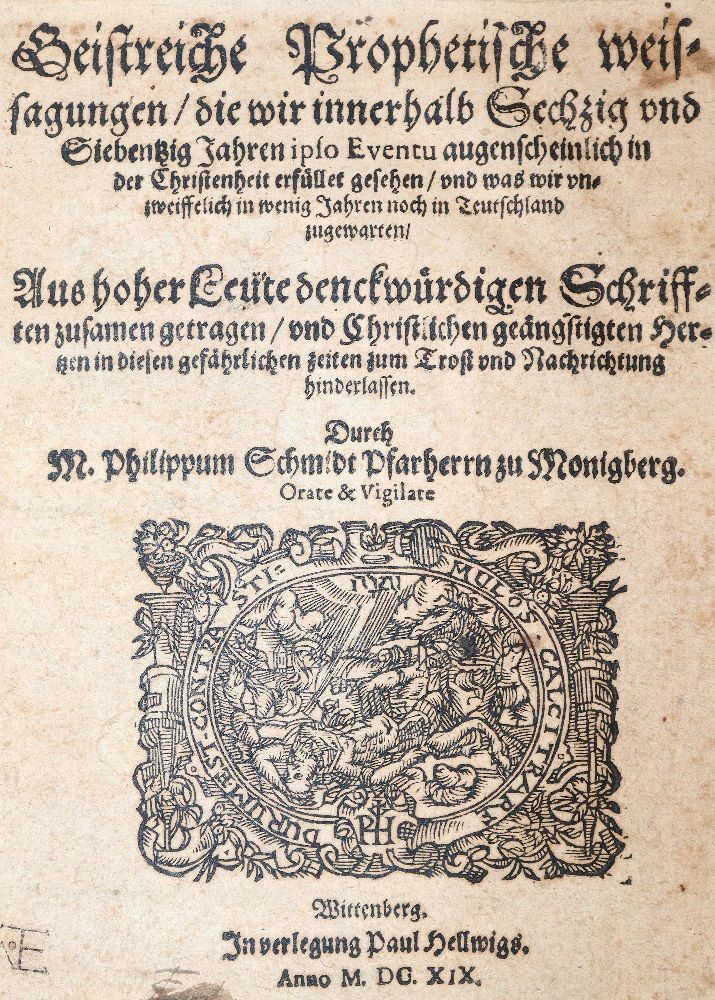 Geistreiche Prophetische weis-
sagungen / die wir innerhalb Sechzig vnd
Siebentzig Jahren ipso Eventu augenscheinlich in
der Christenheit erfüllet gesehen / vnd was wir vn-
zweiffelich in wenig Jahren noch in Teutschland
zugewarten/
Aus hoher Leute denckwürdigen Schriff-
ten zusamen getragen / vnd Christlichen geängstigten Her-
tzen in diesen gefährlichen zeiten zum Trost vnd Nachrichtung
hinderlassen.
Durch
M. Philippum Schmidt Pfarherrn zu Monigberg.
Orate & Vigilate
DURUM EST CONTRA STI-MULOS CALCITRARE
PH
Wittenberg.
In verlegung Paul Hellwigs.
Anno M. DC. XIX.
Æ